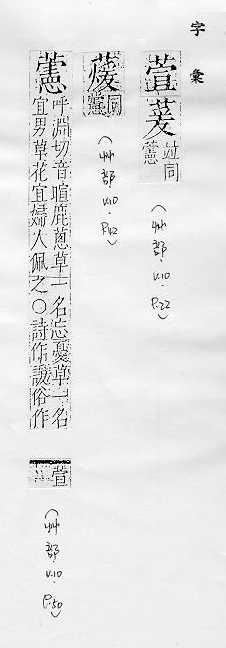 字彙
萱萲 竝同
藼
(艸部.V.10.P.22)
蕿 同
藼
(艸部.V.10.P.42)
藼 呼淵切音喧鹿蔥草一名忘憂草一名
宜男草花宜婦人佩之○詩作諼俗作
萱
(艸部.V.10.P.50)